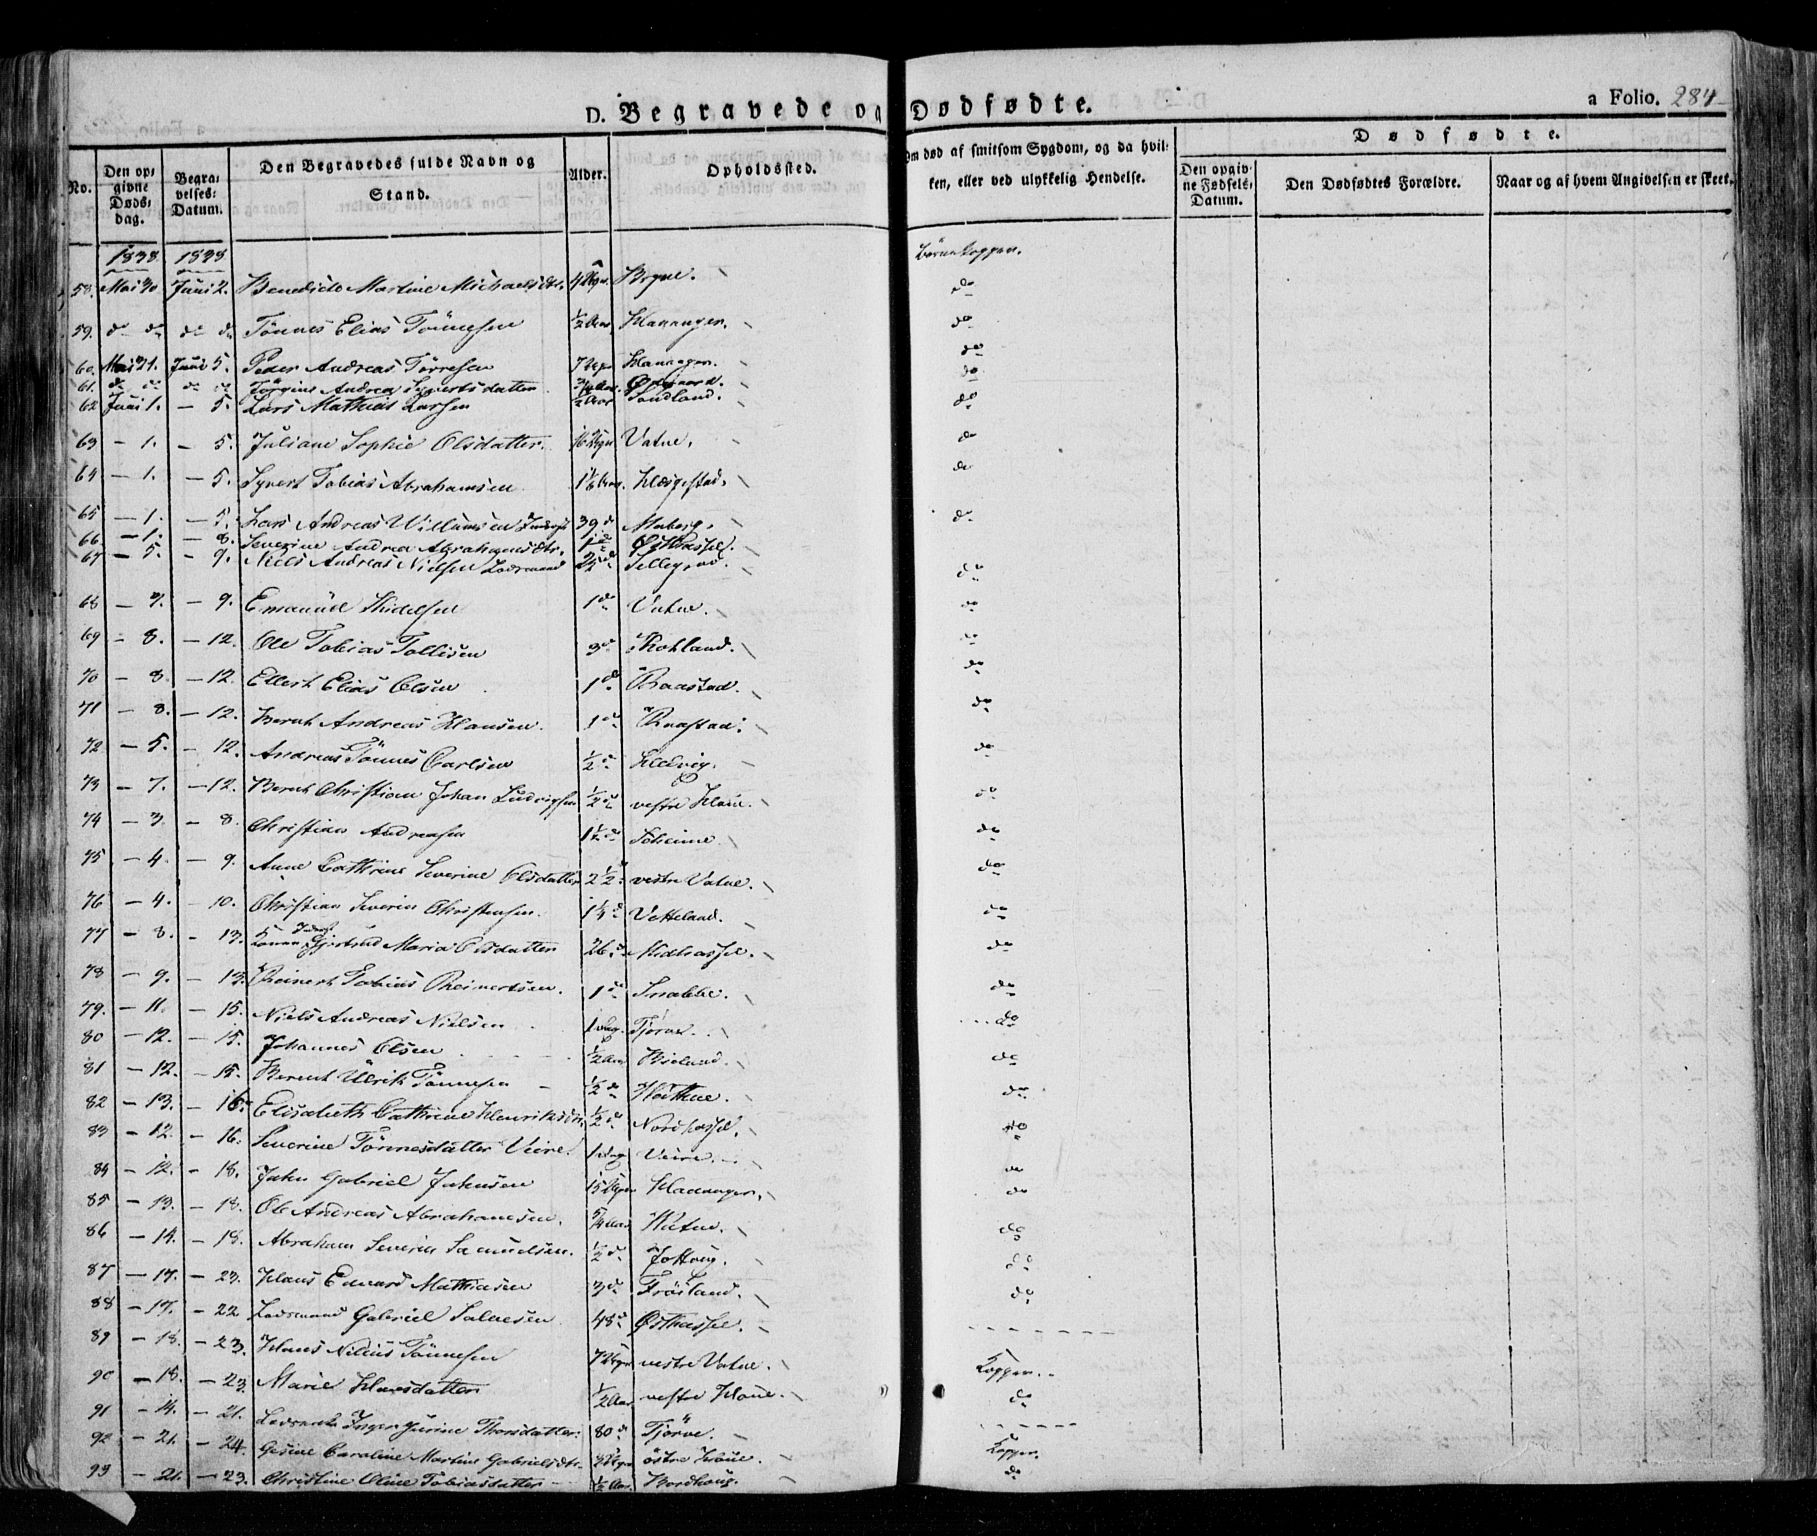 D. Begravede og Dødfødte.
a Folio. 284
No.
Den opgivne Døds dag.
Begravelses Datum.
Den Begravedes fulde Navn og Stand.
Alder.
Opholdssted.
Om død af smitsom Sygdom, og da hvilken, eller ved ulykkelig Hendelse.
Dødfødte.
Den opgivne Fødsels Datum.
Den Dødfødtes Forældre.
Naar og af hvem Angivelsen er skeet.
1838 1838 Børnekopper.
58. Mai 30 Juni 2. Martine Michaelsdtr. Bryne. do
59. do do do do Tönnes Elias Tönnesen 1/2 Aar Hananger. do
60. Mai 31. Juni 5. Peder Andreas Törresen 7 Uger Hananger. do
61. do do do do Andrea Syvertsdatter do
62 Juni 1. — 5. Lars Mathias Larsen 1/2 Aar Sandland. do
63 — 1. — 5. Juliane Sophie Olsdatter. 16 Uger Vatne. do
64 — 1. — 5. Syvert Tobias Abrahamsen 1 1/6 Aar. do
65 — 1. — 5. Lars Andreas Willumsen 39 do Maberg. do
66 — 1. — 8. Severine Andrea Abrahamsdtr. 1 do Østhassel.
67 — 5. — 9. Niels Andreas Nielsen Lodsmand 25 do do
68 — 7. — 9. Emanuel 1 do Vatne. do
69 — 8. — 12. Ole Tobias Tollisen 3 do do
70 — 8. — 12. Ellert Elias Olsen 1 do do
71 — 8. — 12. Bernt Andreas Hansen. 1 do do
72 — 5. — 12. Andreas Tönnes Carlsen 1/2 do do
73 — 7. — 12. Bernt Christian Johan Ludvigsen 1/2 do vestre Haue. do
74 — 3. — 8. Christian Andreasen do
75 — 4. — 9. Anne Cathrine Severine Olsdatter 2 1/2 do vestre Vatne. do
76 — 4. — 10. Christian Severin Christensen. 1 1/4 do Vetteland. do
77 — 8. — 13. Gjertrud Maria Olsdatter 26 do Midhassel. do
78 — 9. — 13. Reinert Tobias Reinertsen. 1 do Snekke. do
79. — 11. — 15. Niels Andreas Nielsen 1 Dag. Tjörve. do
80 — 12. — 15. Johannes Olsen 1/2 Aar do
81 — 12. — 15. Berent Ulrik Tönnesen 1/2 do do
82 — 13. — 16. Elisabeth Cathrine Henriksdtr. 1/2 do Nordhassel. do
83 — 12. — 16. Severine Tönnesdatter Veire. 1 Dag Veire. do
84 — 12. — 18. Jahn Gabriel Jahnsen 15 Uger Hananger. do
85 — 13. — 18. Ole Andreas Abrahamsen. 5/4 Aar do
86 — 14. — 18. Abraham Severin Samuelsen. 1/2 do Jøllevig. do
87 — 17. — 23. Hans Edvard Mathiasen 3 do Fröiland. do
88 — 17. — 22 Lodsmand Gabriel Salvesen 48 do Østhassel. do
89 — 18. — 23. Hans Nilius Tönnesen 7 Uger vestre Vatne. Kopper.
90 — 18. — 23. Marie Hansdatter 1/2 Aar vestre Haue. do
91 — 14. — 21. Inger Jurine Thorsdatter. 80 do Tjörve.
92 — 21. — 24. Gesine Caroline Martine Gabrielsdtr. östre Haue. Kopper.
93 — 21. — 23. Christine Oline Tobiasdatter 1/2 Aar. Bordhoug. do